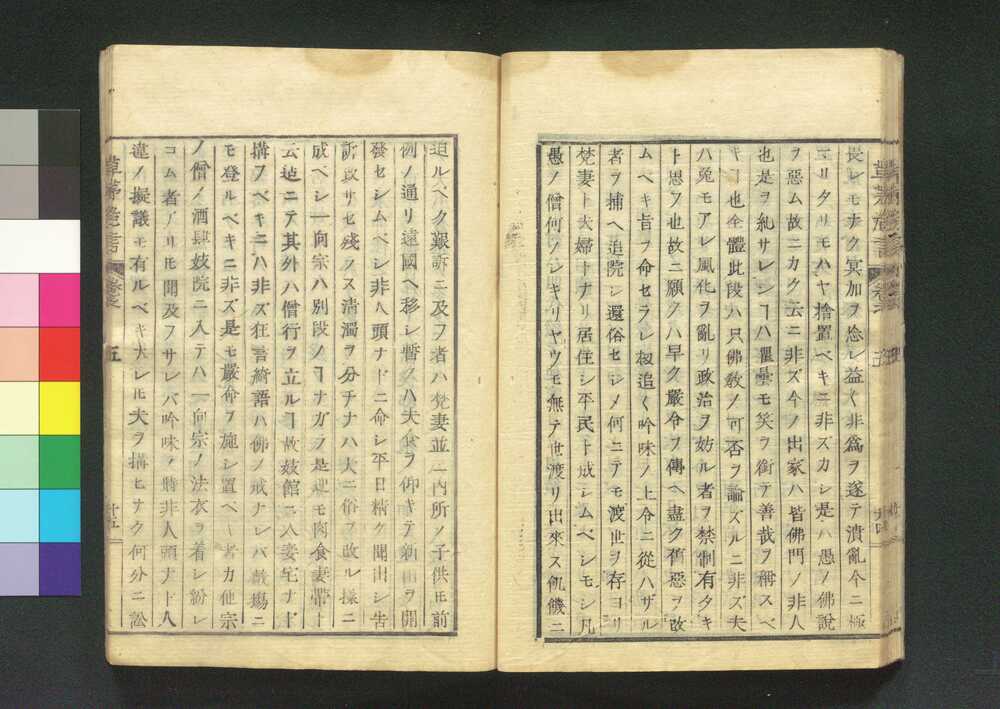 長レモナク冥加ヲ忩レ益〻非爲ヲ遂テ潰亂今ニ極
マリタリモハヤ捨置ベキニ非ズカレ是ハ愚ノ佛說
ヲ惡ム故ニカク云ニ非ズ今ノ出家ハ皆佛門ノ非人
也是ヲ糺サレンヿハ瞿曇モ笑ヲ衝テ善哉ヲ稱スベ
キヿ也全體此段ハ只佛敎ノ可否ヲ論ズルニ非ズ夫
ハ兎モアレ風化ヲ亂リ政治ヲ妨ル者ヲ禁制有タキ
ト思フ也故ニ願クハ早ク嚴令ヲ傳ヘ盡ク舊惡ヲ改
ムベキ旨ヲ命セラレ扨追〻吟味ノ上令ニ從ハザル
者ヲ捕ヘ追院シ還俗セシメ何ニテモ渡世ヲ存ヨリ
梵妻ト夫婦トナリ居住シ平民ト成シムベシモシ凡
愚ノ僧何ノシキリヤウモ無テ世渡リ出來ス飢饑ニ
草茅危言 卷之 五 廿四
迫ルベク艱訴ニ及フ者ハ梵妻並ニ内所ノ子供モ前
例ノ通リ遠國ヘ移シ暫クハ夫食ヲ仰キテ新田ヲ開
發セシムベシ非人頭ナドニ命シ平日精ク聞出シ告
訴致サセ殘ラス淸濁ヲ分チナハ大ニ俗ヲ改ル樣ニ
成ベシ一向宗ハ別段ノヿナガラ是迚モ肉食妻帶ト
云迄ニテ其外ハ僧行ヲ立ルヿ故妓館ニ入妾宅ナド
搆フベキニハ非ズ狂言綺語ハ佛ノ戒ナレバ戲場ニ
モ登ルベキニ非ズ是モ嚴命ヲ施シ置ベキ者カ他宗
ノ僧ノ酒肆妓院ニ入テハ一向宗ノ法衣ヲ着シ紛レ
コム者アリ𪜈聞及フサレバ吟味ノ時非人頭ナド人
違ノ擬議モ有ルベキ夫レ𪜈夫ヲ搆ヒナク何分ニ訟
草茅危言 卷之 五 廿五